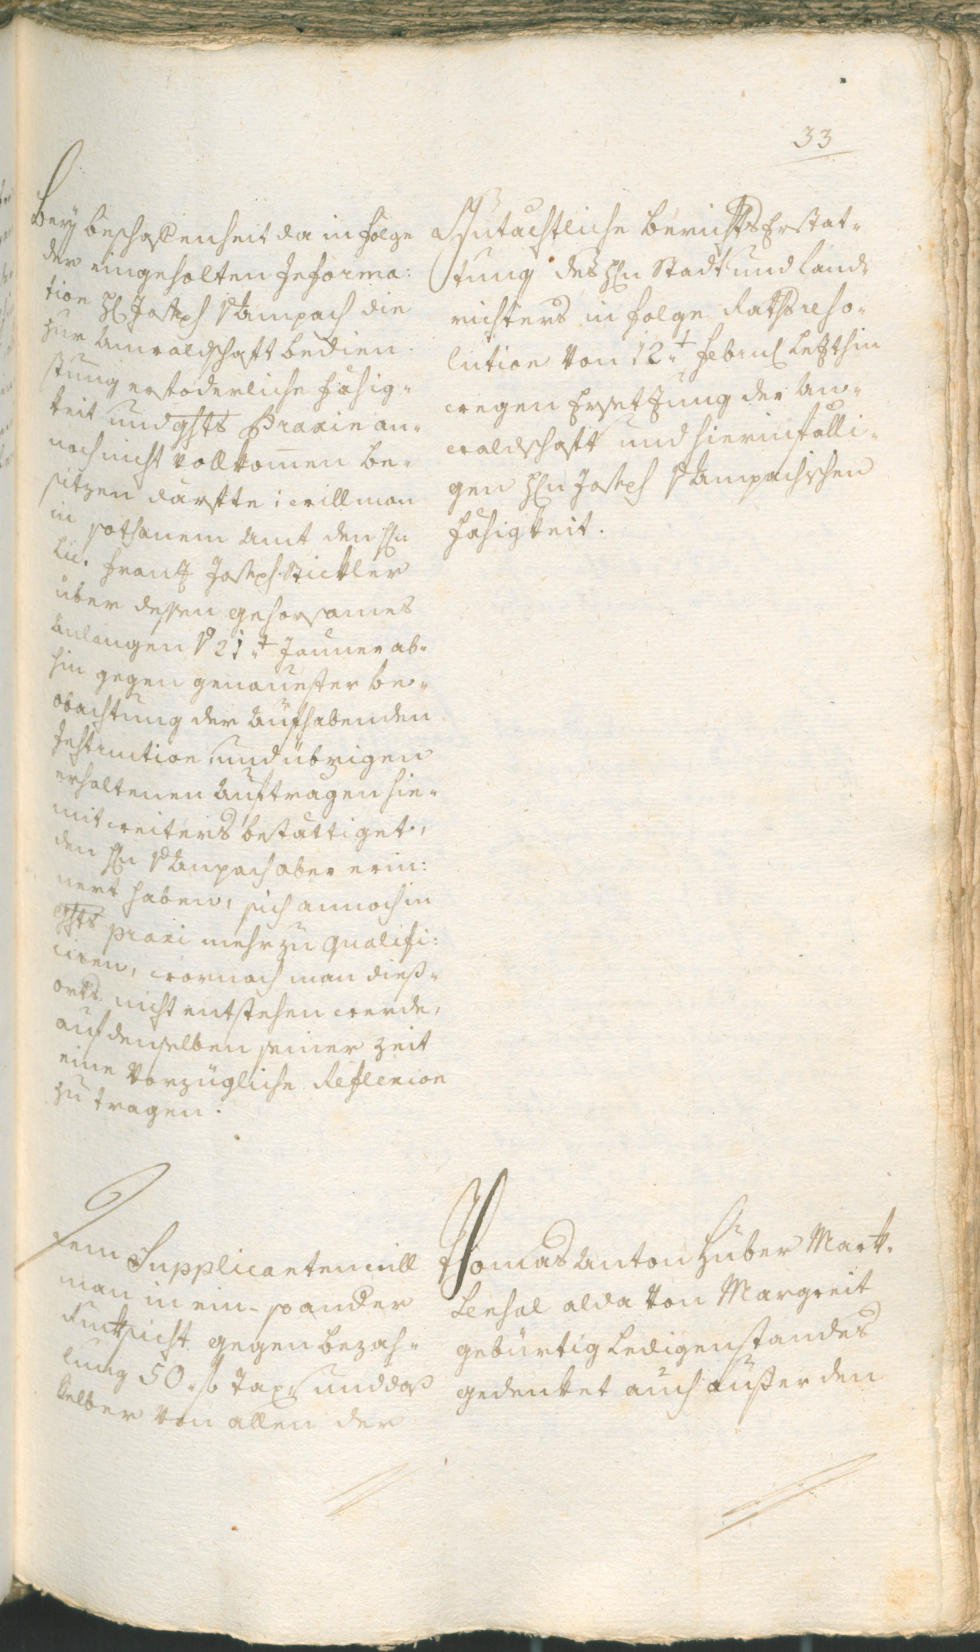 33
Bey beschaffenheit da in folge
der eingeholten Informa:
tion H: Joseph v Ampach die
zur Anwaldschafft bedien
stung erfoderliche fähig-
keit und ghts Praxin an-
noch nicht vollkommen be-
sitzen därffte: will man
in sothanem Amt den Hn
Lic. Frantz Joseph Stickler
über dessen gehorsames
Anlangen v 21.t Jenner ab-
hin gegen genauester be-
obachtung der aufhabenden
Instruction, und übrigen
erhaltenen Aufträgen hie-
mit weiters bestättiget,
den Hn v Ampach aber erin:
nert haben, sich annoch in
ghts praxi mehr zu qualifi:
ciren, wornach man dieß-
orts nicht entstehen werde,
auf denselben seiner Zeit
eine vorzügliche Reflexion
zu tragen.
Gutächtliche berichts Erstat-
tung des Hn Stadt und Land-
richters in folge Rathsreso-
lution von 12.t Febru: letzthin
wegen Ersetzung der An-
waldschafft und hierinfälli-
gen Hn Joseph v Ampachischen
fähigkeit.
Dem Supplicanten will
man in ein- so ander
Rucksicht gegen bezah-
lung 50 f Tax, und daß
selber von allen der
Thomas Anton Huber Mark-
Leehol alda von Margreit
gebürtig ledigen standes
gedenket auch außer den